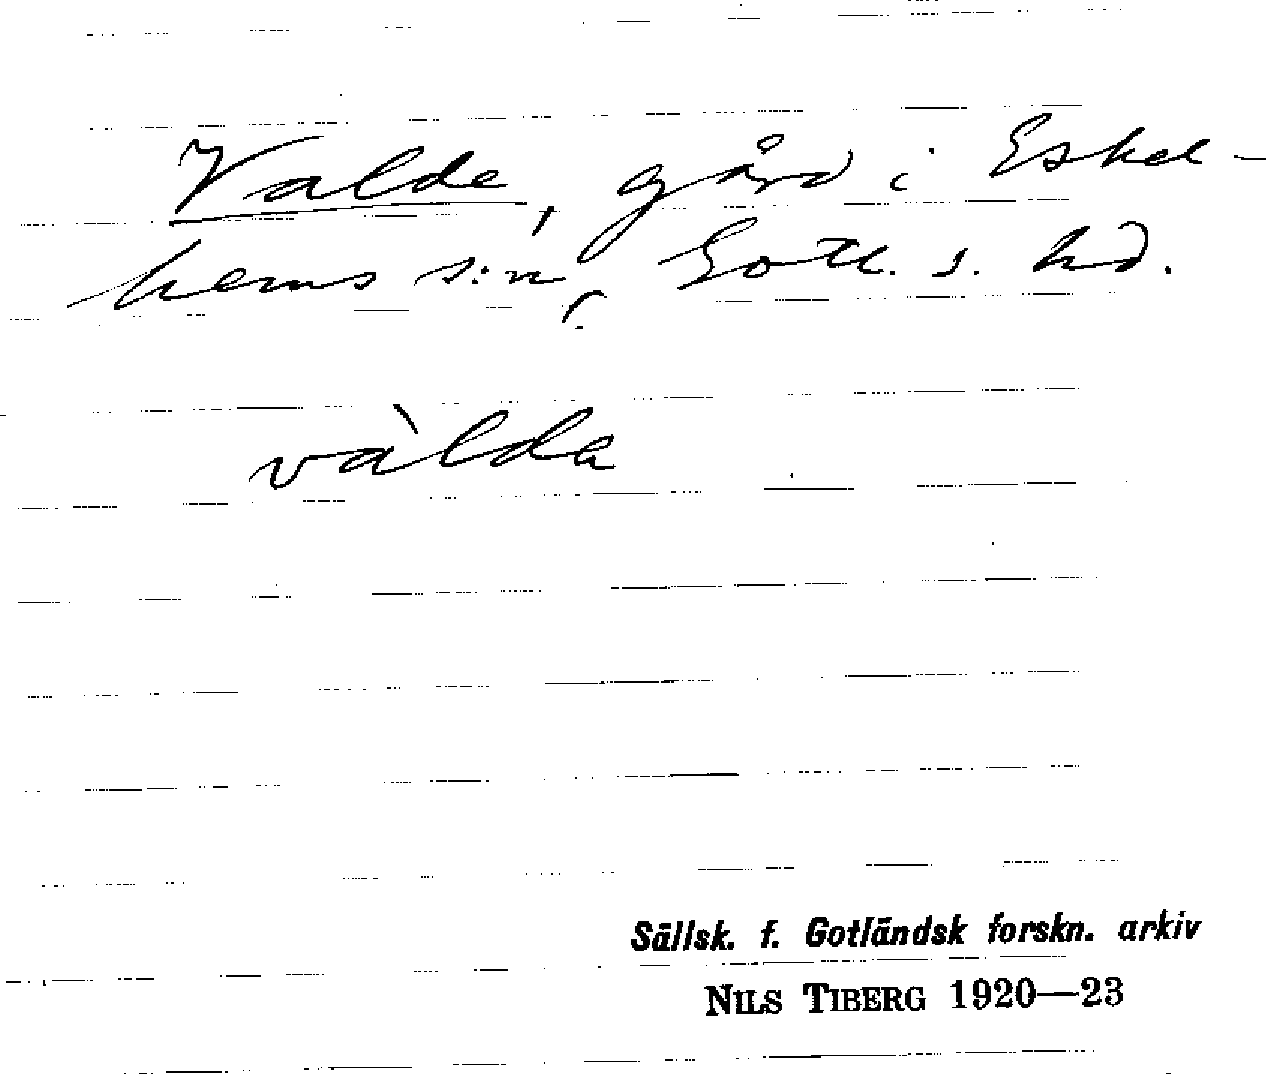 Valde, gård i Eskel-
hems s:n, Gotl. s. hd.
vàlda
Sällsk. f. Gotländsk forskn. arkiv
NILS TIBERG 1920—23